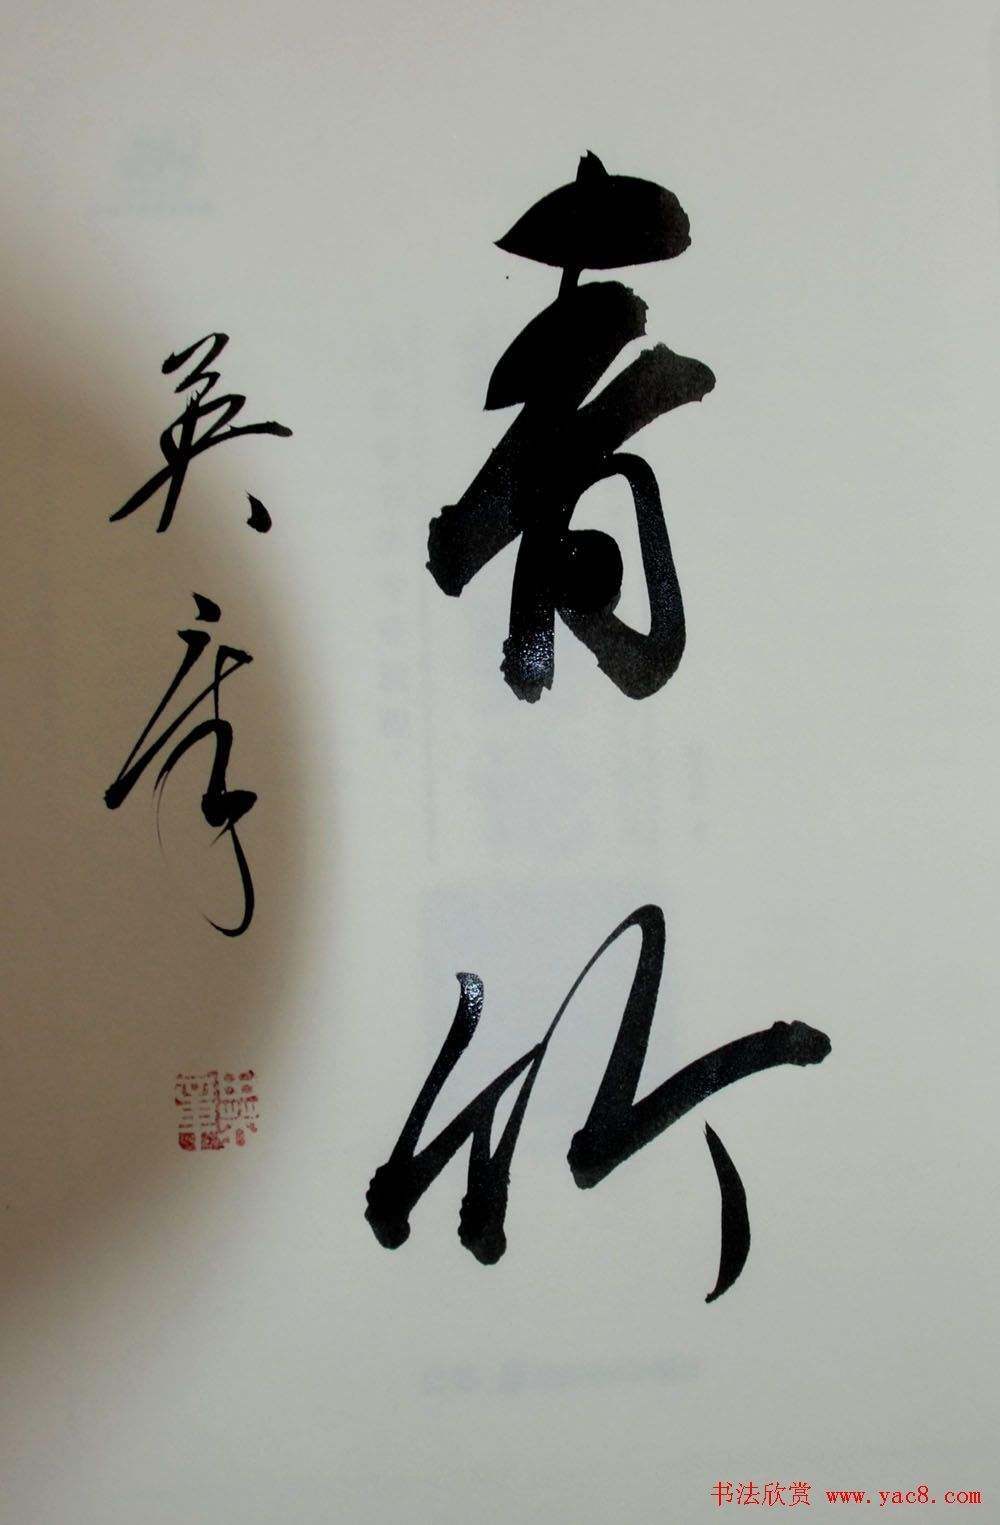 青竹
英
书法欣赏 www.yac8.com